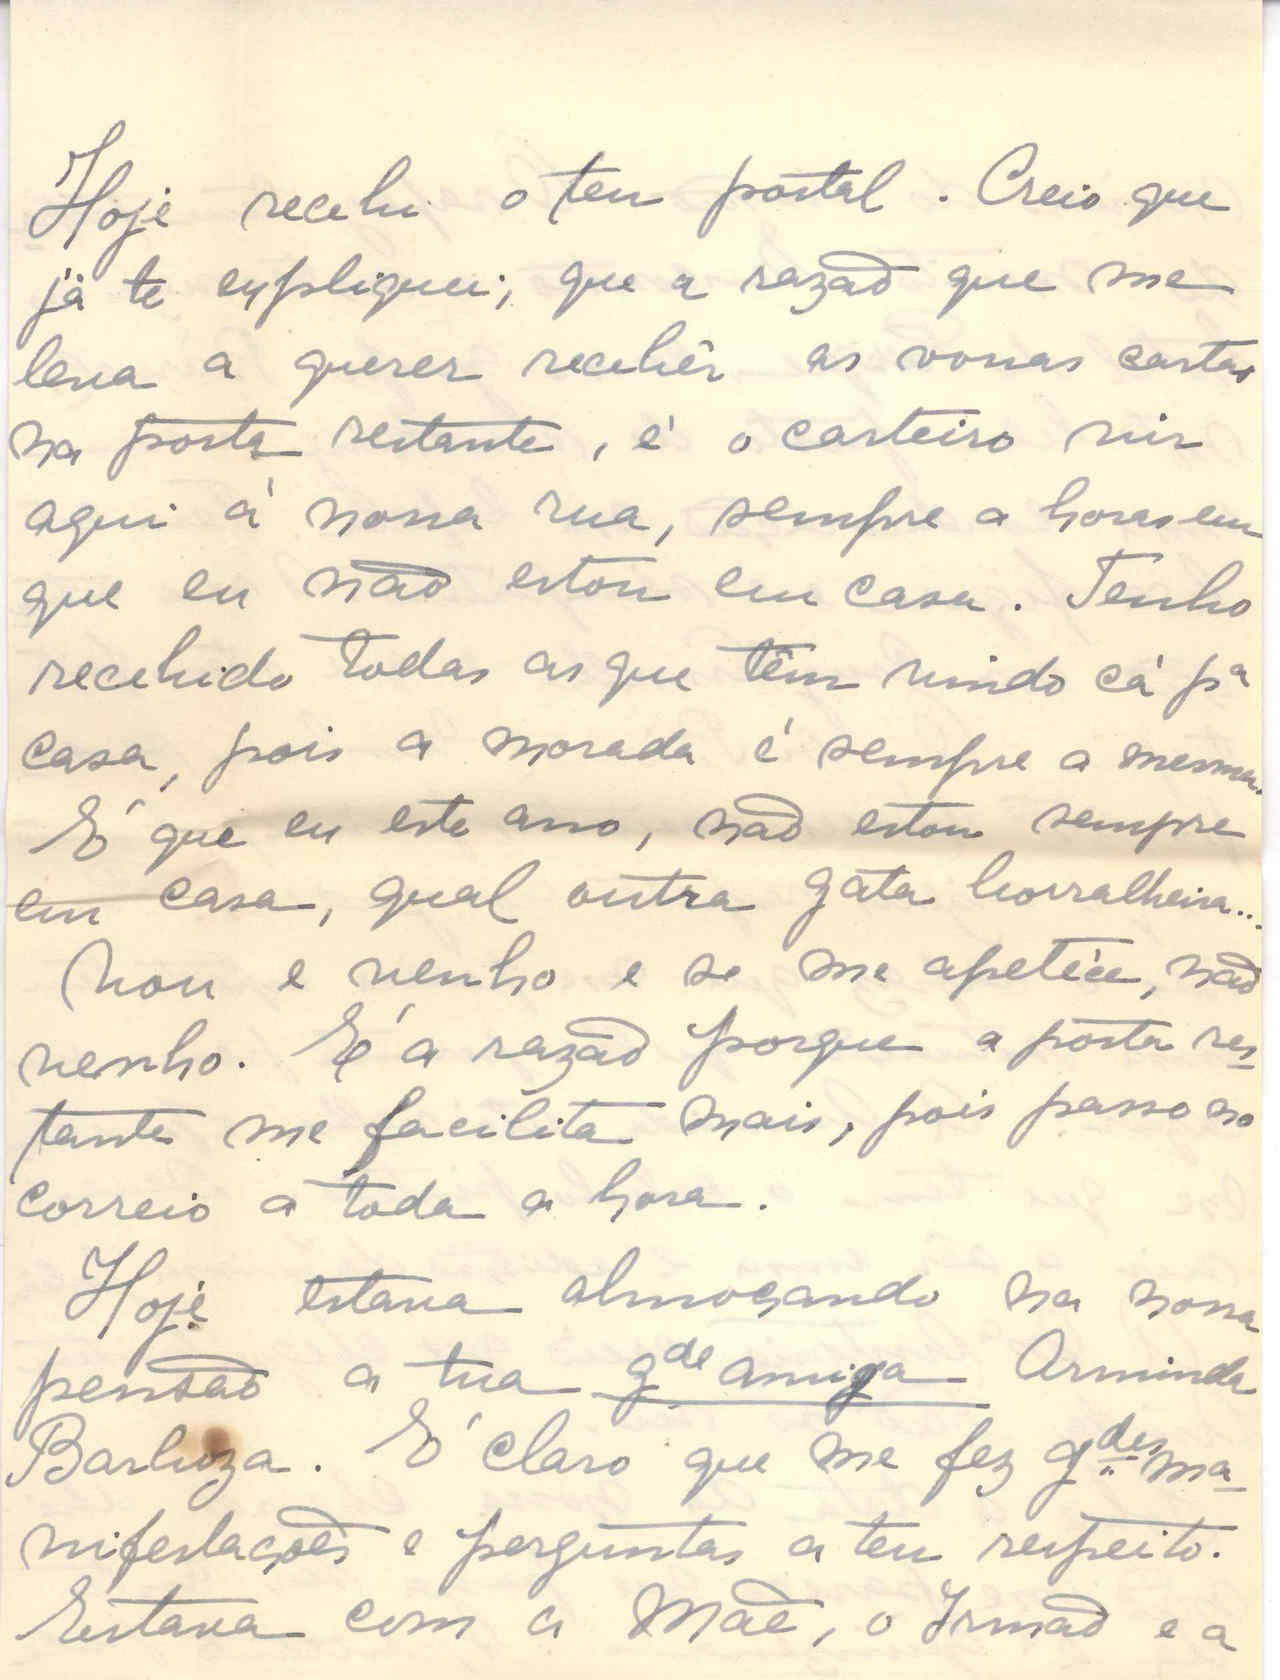 Hoje recebi o teu postal. Creio que
já te expliquei, que a razão que me
leva a querer recebêr as vossas cartas
na posta restante, é o carteiro vir
aqui á nossa rua, sempre a horas em
que eu não estou em casa. Tenho
recebido todas as que têm vindo cá pª
casa, pois a morada é sempre a mesma.
É que eu este ano, não estou sempre
em casa, qual outra gata borralheira...
Vou e venho e se me apetéce, não
venho. É a razão porque a posta res-
tante me facilita mais, pois passo no
correio a toda a hora.
Hoje estava almoçando na nossa
pensão a tua gde amiga Arminda
Barboza. É claro que me fez gdes ma-
nifestações e perguntas a teu respeito.
Estava com a Mãe, o Irmão e a